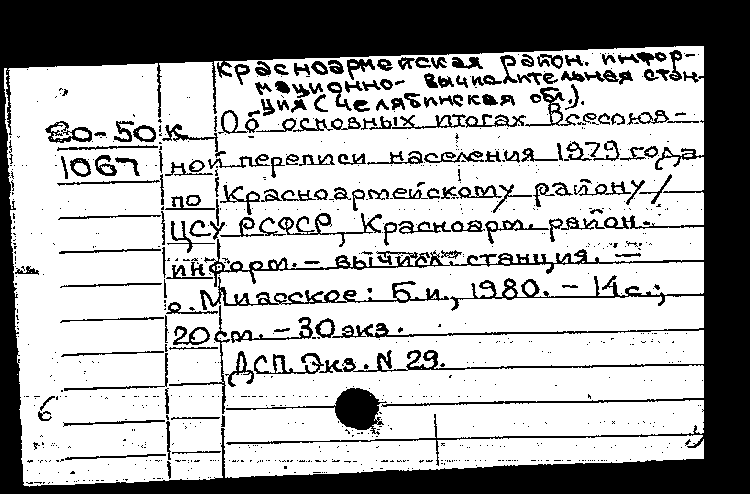 Красноармейская район. инфор-
мационно-вычислительная стан-
ция (Челябинская обл.).
80-50 к Об основных итогах Всесоюз-
1067 ной переписи населения 1979 года
по Красноармейскому району /
ЦСУ РСФСР, Красноарм. район.
информ.-вычисл. станция. —
с. Миасское: Б.и., 1980. - 14 с.;
20 см. - 30 экз.
ДСП. Экз. N 29.
6